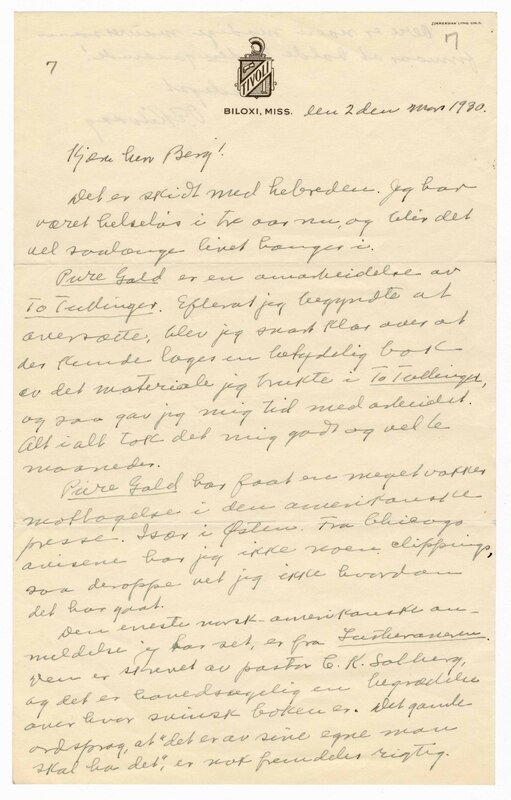 ZIMMERMAN LITHO. CHGO.
7
7
TIVOLI
BILOXI, MISS.
den 2den Mars 1930.
Kjære herr Berg!
Det er skidt med helbreden. Jeg har
været helseløs i tre aar nu, og blir det
vel saalænge livet hænger i.
Pure Gold er en omarbeidelse av
To Tullinger. Efterat jeg begyndte at
oversætte, blev jeg snart klar over at
der kunde lages en betydelig bok
av det materiale jeg brukte i To Tullinger,
og saa gav jeg mig tid med arbeidet.
Alt i alt tok det mig godt og vel 6
maaneder.
Pure Gold har faat en meget vakker
mottagelse i den amerikanske
presse. Især i Østen. Fra Chicago
avisene har jeg ikke noen clippings,
saa deroppe vet jeg ikke hvordan
det har gaat.
Den eneste norsk-amerikanske an-
meldelse jeg har set, er fra Lutheraneren.
Den er skrevet av pastor C. K. Solberg,
og det er hovedsagelig en begrædelse
over hvor svinsk boken er. Det gamle
ordsprog, at "det er av sine egne man
skal ha det", er nok fremdeles rigtig.